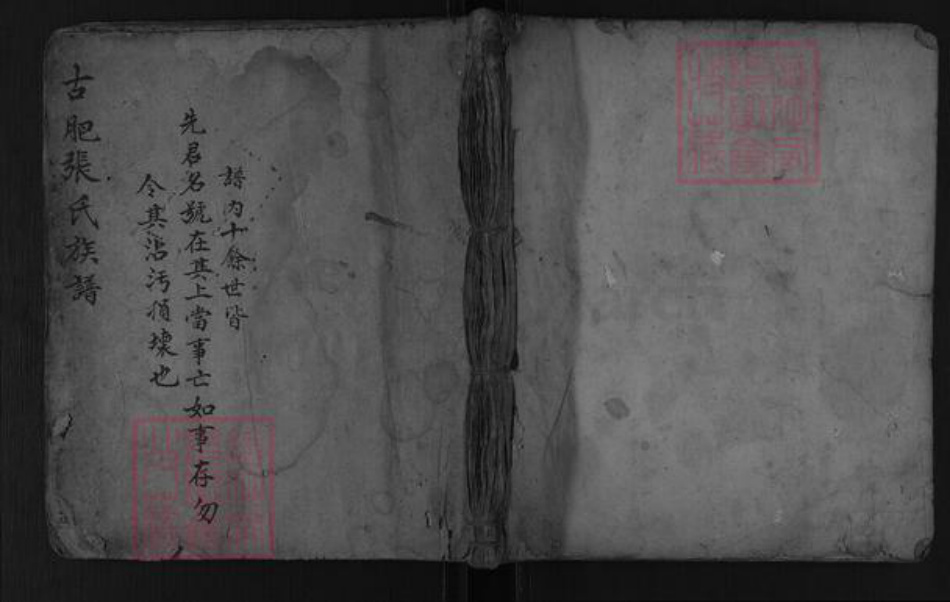 譜內十餘世皆
先君名號在其上當事亡如事存勿
令其沾污損壞也
古肥張氏族譜